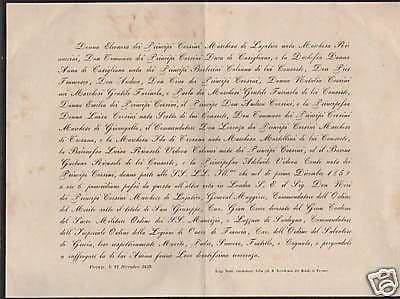 Donna Eleonora dei Principi Corsini Marchesa di Lajatico nata Marchesa Rinuccini
Don Tommaso dei Principi Corsini Duca di Casigliano, e la Duchessa Donna
Anna di Casigliano nata dei Principi Barberini Colonna di lui Consorte, Don Pier
Francesco, Don Andrea, Don Cino dei Principi Corsini, Donna Natalia Corsini
nei Marchesi Gentili Farinola, e Paolo dei Marchesi Gentili Farinola di lei Consorte,
Donna Emilia dei Principi Corsini, il Principe Don Andrea Corsini, e la Principessa
Donna Luisa Corsini nata Scotto di lui Consorte, Don Tommaso dei Principi Corsini
Marchese di Giovagallo, il Commendatore Don Lorenzo dei Principi Corsini Marchese di
Tresana, e la Marchesa Ida di Tresana nata Marchesa di lui Consorte,
la Baronessa Luisa Ricasoli Vedova nata dei Principi Corsini, ed il Barone
Gaetano Ricasoli di lei Consorte, e la Principessa Adelaide Vedova Conti nata dei
Principi Corsini, danno parte alle SS. LL. Ill.me che nel dì primo Dicembre 1859
a ore 6 pomeridiane passò da questa all'altra vita in Londra S. E. il Sig. Don Neri
dei Principi Corsini Marchese di Lajatico General Maggiore, Commendatore dell'Ordine
del Merito sotto il titolo di San Giuseppe, Cav. Gran Croce decorato del Gran Cordone del
Sacro Militare Ordine dei SS. Maurizio, e Lazzaro di Sardegna, Commendatore
dell'Imperiale Ordine della Legione di Onore di Francia, Cav. dell'Ordine del Salvatore
di Grecia, loro respettivamente Marito, Padre, Suocero, Fratello, e Cognato, e pregandole
a suffragare la di lui Anima fanno Loro devotissima reverenza.
Firenze, li 17 Dicembre 1859.